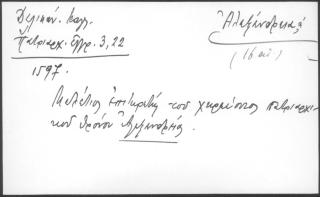 Δελικάν. Καλλ.
Πατριαρχ. έγγρ. 3, 22
Ἀλεξάνδρεια
(16 αἰ)
1597.
Μελέτιος ἐπιτηρητής τοῦ χηρεύοντος πατριαρχι-
κοῦ θρόνου Ἀλεξανδρείας